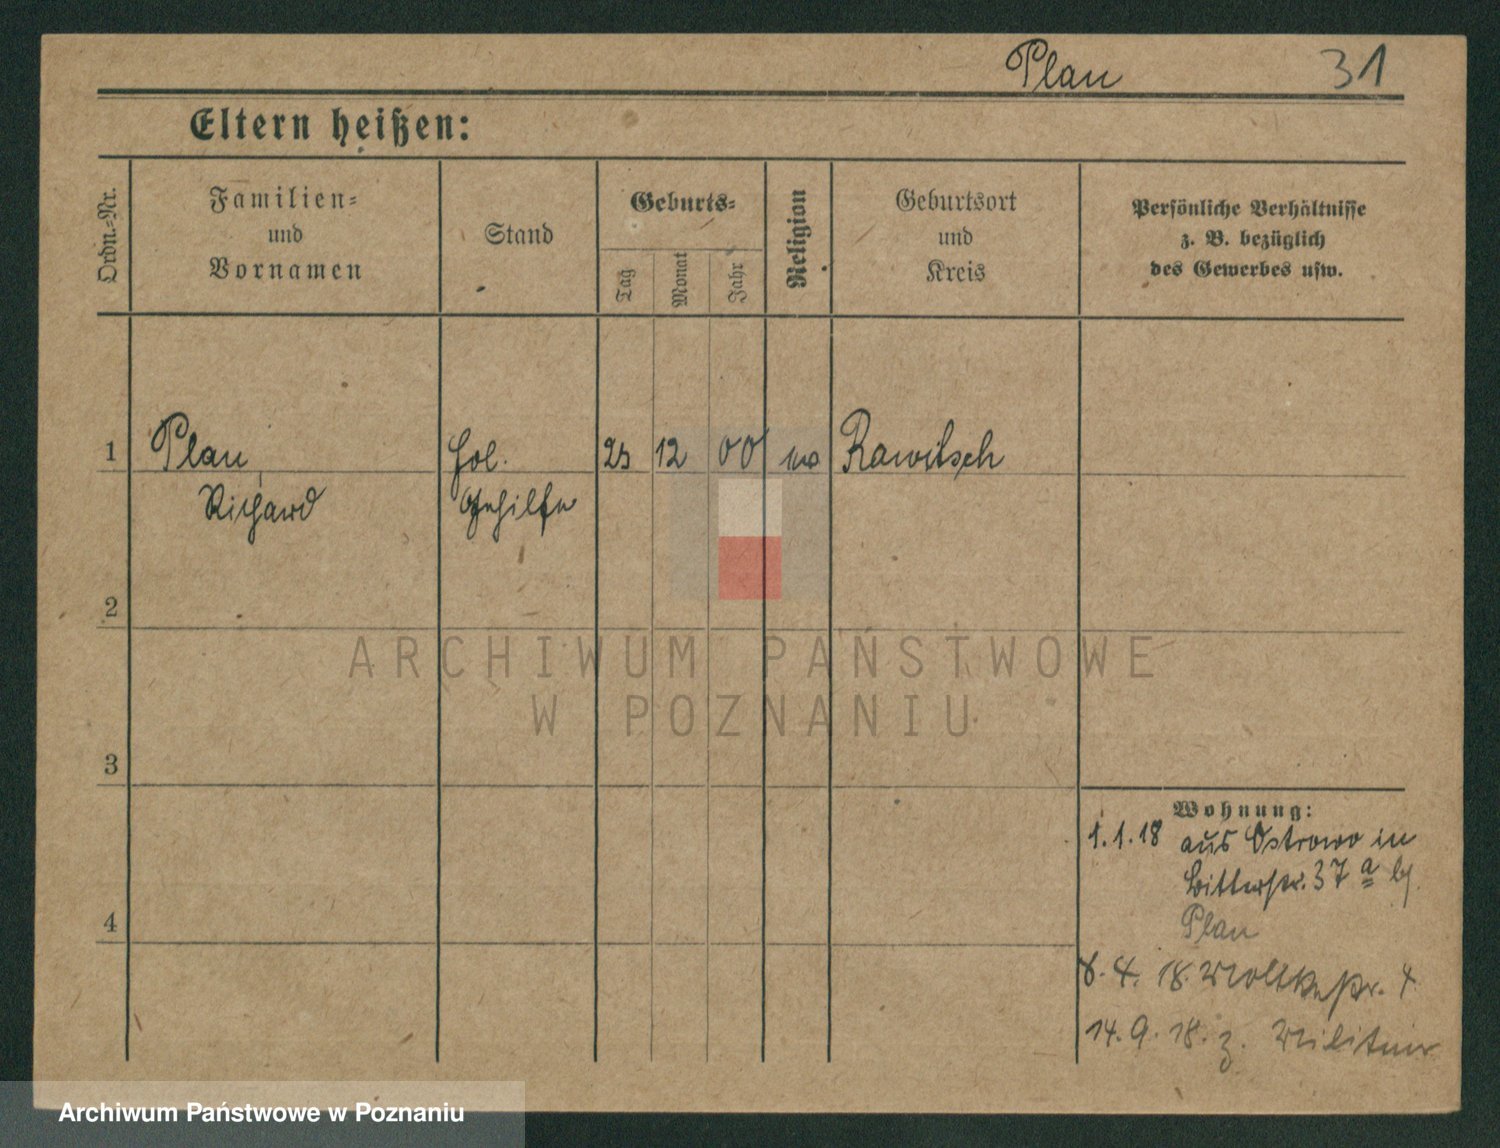 Plan 31
Eltern heißen:
Ordn.-Nr.
Familien-
und
Vornamen
Stand
Geburts-
Tag
Monat
Jahr
Religion
Geburtsort
und
Kreis
Persönliche Verhältnisse
z. B. bezüglich
des Gewerbes usw.
1 Plan, 12 00 Rawitsch
Richard Gehilfe
2
3
4
Wohnung:
1.1.18 aus Ostrowo in
37 a bj.
Plan
8. 4. 18. Moltkestr. 4
14. 9. 18. z. Militär
ARCHIWUM PAŃSTWOWE
W POZNANIU
Archiwum Państwowe w Poznaniu